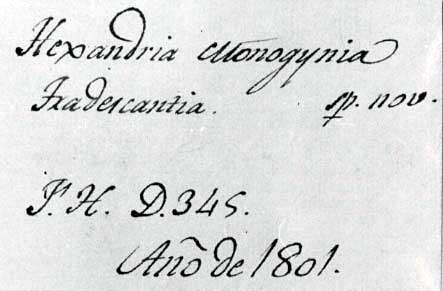 Hexandria Monogynia
Tradescantia. sp. nov.
F. H. D. 345.
Año de 1801.